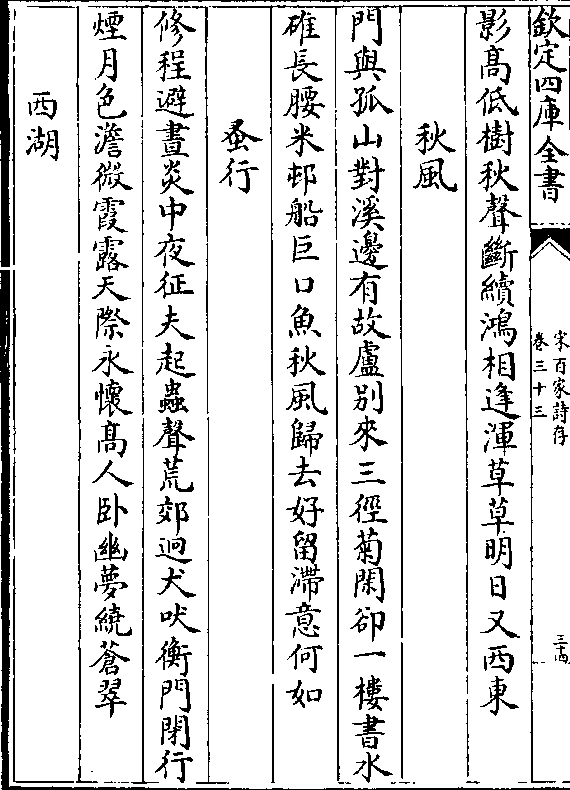 欽定四庫全書
宋百家詩存
卷三十三
三十四
影髙低樹秋聲斷續鴻相逢渾草草明日又西東
秋風
門與孤山對溪邊有故廬别來三徑菊閑卻一樓書水
碓長腰米邨船巨口魚秋風歸去好留滯意何如
蚤行
修程避晝炎中夜征夫起蟲聲荒郊迥犬吠衡門閉行
煙月色澹微霞露天際永懷髙人卧幽夢繞蒼翠
西湖